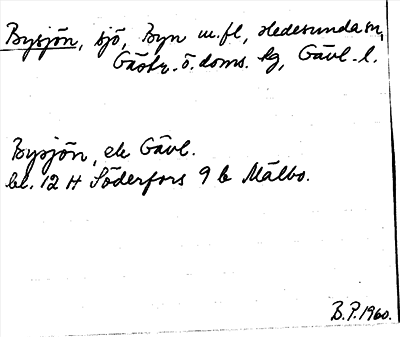 Bysjön, sjö, Byn m.fl, Hedesunda sn,
Gästr. ö. doms. lg, Gävl. l.
Bysjön, ek Gävl.
bl. 12 H Söderfors 9 b Mälbo.
B.P. 1960.